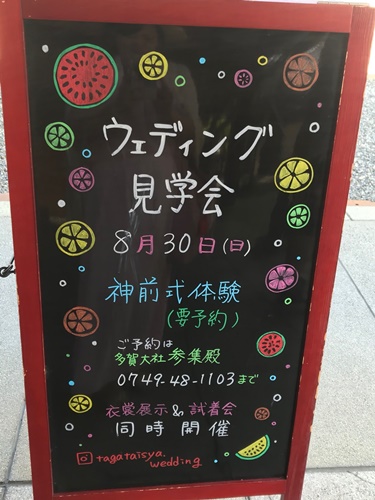 ウェディング
見学会
8月30日(日)
神前式体験
(要予約)
ご予約は
多賀大社 参集殿
0749-48-1103まで
衣裳展示&試着会
同時開催
tagataisya.
wedding